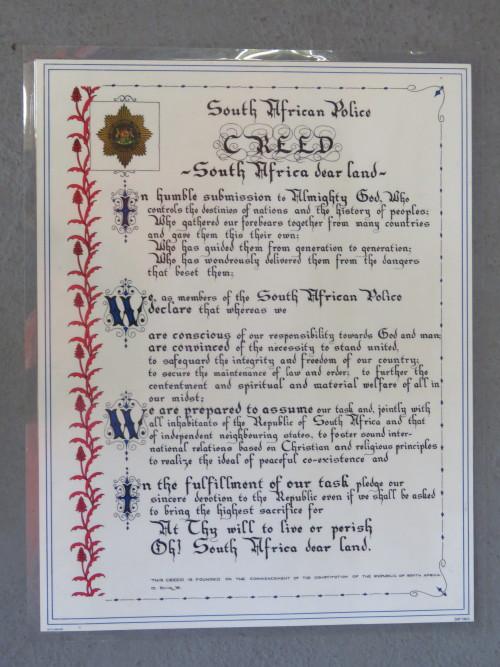 South African Police
CREED
~South Africa dear land~
In humble submission to Almighty God, Who
controls the destinies of nations and the history of peoples;
Who gathered our forbears together from many countries
and gave them this their own;
Who has guided them from generation to generation;
Who has wondrously delivered them from the dangers
that beset them;
We, as members of the South African Police
declare that whereas we
are conscious of our responsibility towards God and man;
are convinced of the necessity to stand united,
to safeguard the integrity and freedom of our country;
to secure the maintenance of law and order; to further the
contentment and spiritual and material welfare of all in
our midst;
We are prepared to assume our task and, jointly with
all inhabitants of the Republic of South Africa and that
of independent neighbouring states, to foster sound inter-
national relations based on Christian and religious principles
to realize the ideal of peaceful co-existence and
In the fulfillment of our task, pledge our
sincere devotion to the Republic even if we shall be asked
to bring the highest sacrifice for
At Thy will to live or perish
Oh! South Africa dear land.
THIS CREED IS FOUNDED ON THE COMMENCEMENT OF THE CONSTITUTION OF THE REPUBLIC OF SOUTH AFRICA